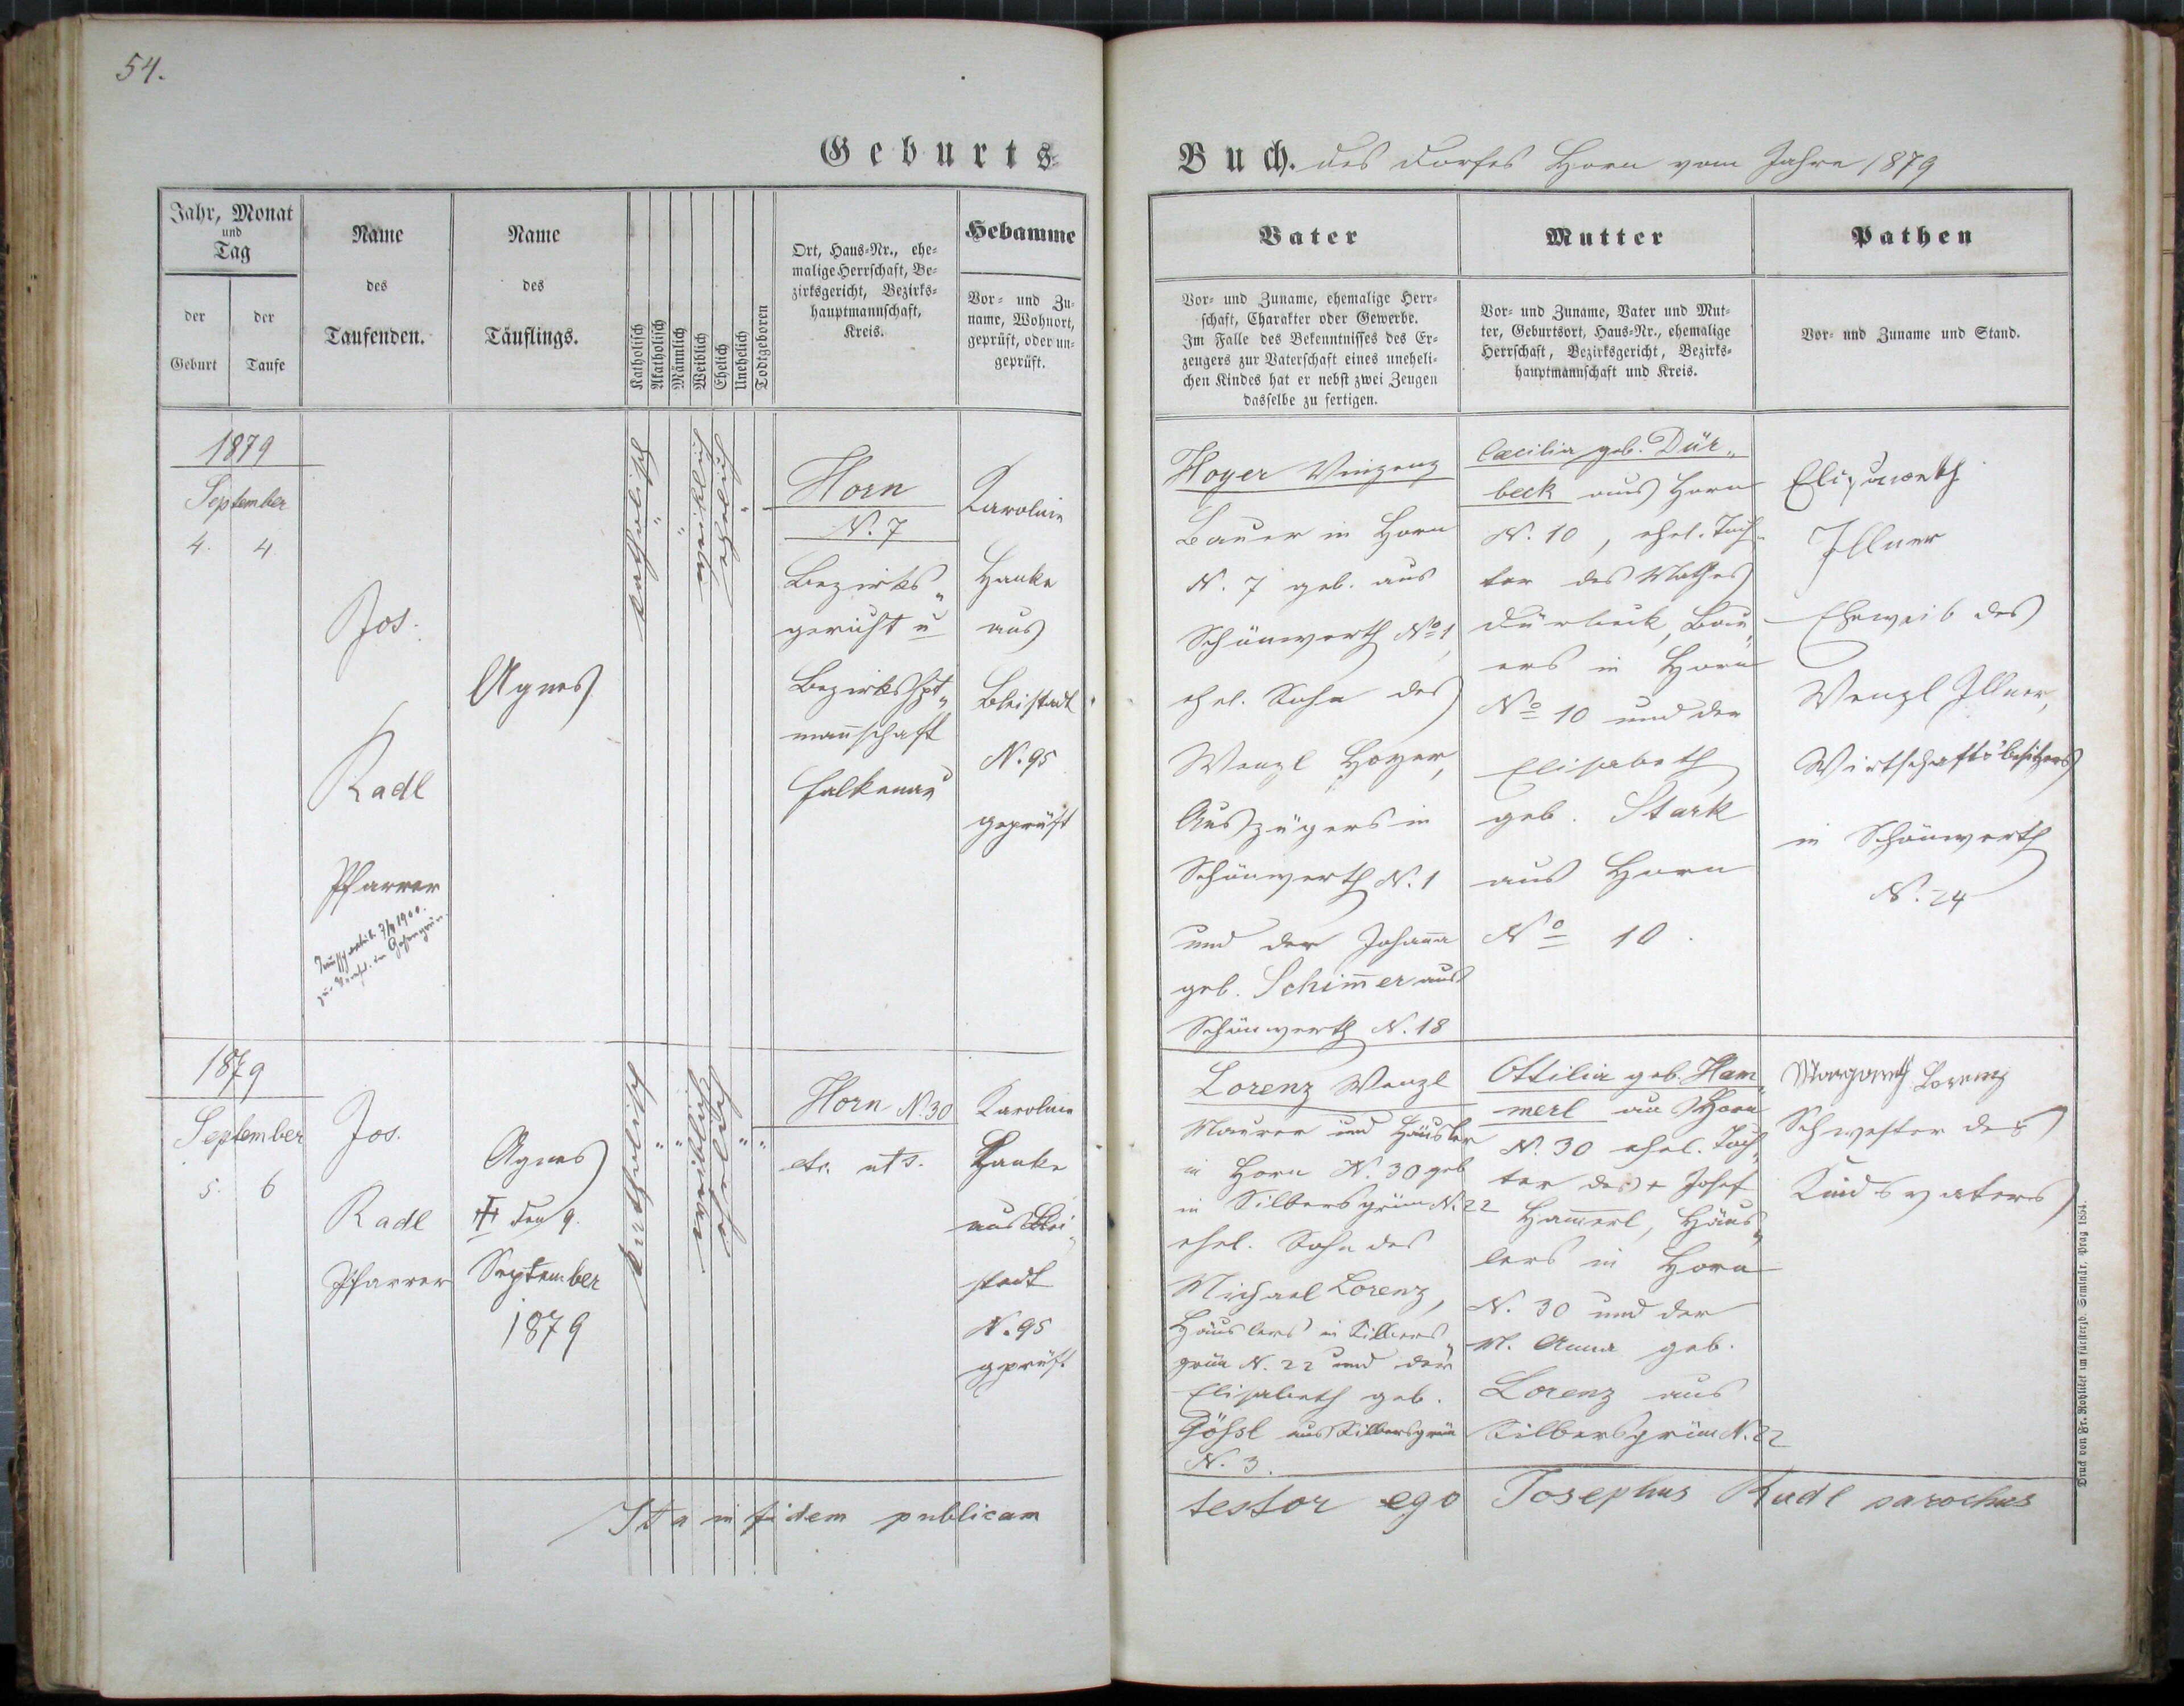 54.
Geburts-
Buch. des Dorfes Horn vom Jahre 1879
Jahr, Monat
und
Tag
der
Geburt
der
Taufe
Name
des
Taufenden.
Name
des
Täuflings.
Katholisch
Akatholisch
Männlich
Weiblich
Ehelich
Unehelich
Todtgeboren
Ort, Haus-Nr., ehe-
malige Herrschaft, Be-
zirksgericht, Bezirks-
hauptmannschaft,
Kreis.
Hebamme
Vor- und Zu-
name, Wohnort,
geprüft, oder un-
geprüft.
Vater
Vor- und Zuname, ehemalige Herr-
schaft, Charakter oder Gewerbe.
Im Falle des Bekenntnisses des Er-
zeugers zur Vaterschaft eines uneheli-
chen Kindes hat er nebst zwei Zeugen
dasselbe zu fertigen.
Mutter
Vor- und Zuname, Vater und Mut-
ter, Geburtsort, Haus-Nr., ehemalige
Herrschaft, Bezirksgericht, Bezirks-
hauptmannschaft und Kreis.
Pathen
Vor- und Zuname und Stand.
1879
September
4. 4
Jos.
Radl
Pfarrer
7/9 1900.
Agnes
katholisch
"
"
weiblich
ehelich
"
"
Horn
N. 7
Bezirks„
gericht u
Bezirkshpt„
mannschaft
Falkenau
Karolina
Hanke
aus
Bleistadt
N. 95
geprüft
Hoyer Vinzenz
Bauer in Horn
N. 7 geb. aus
Schönwerth No 1,
ehel. Sohn des
Wenzl Hoyer,
Auszügers in
Schönwerth N. 1
und der Johanna
geb. Schimmer aus
Schönwerth N. 18
Cæcilia geb. Dür„
beck aus Horn
N. 10, ehel. Toch„
ter des Mathes
Dürbeck, Bau„
ers in Horn
No 10 und der
Elisabeth
geb. Stark
aus Horn
No 10.
Elisabeth
Illner
Eheweib des
Wenzl Illner,
Wirtschaftsbesitzers
in Schönwerth
N. 24
1879
September
5. 6
Jos.
Radl
Pfarrer
Agnes
† den 9.
September
1879
katholisch
"
"
weiblich
ehelich
"
"
Horn N. 30
etc. uts.
Karolina
Hanke
aus Blei„
stadt
N. 95
geprüft
Lorenz Wenzl
Maurer und Häusler
in Horn N. 30 geb
in Silbersgrün N. 22
ehel. Sohn des
Michael Lorenz,
Häuslers in Silbers„
grün N. 22 und der
Elisabeth geb.
Gößl aus Silbersgrün
N. 3.
Ottilia geb. Ham„
merl aus Horn
N. 30 ehel. Toch„
ter des + Josef
Hammerl, Häus„
lers in Horn
N. 30 und der
M. Anna geb.
Lorenz aus
Silbersgrün N. 22
Margareth Lorenz
Schwester des
Kindsvaters
Ita in fidem publicam
testor ego Josephus Radl parochus
Druck von Fr. Rohliček im fürsterzb. Seminär, Prag 1854.